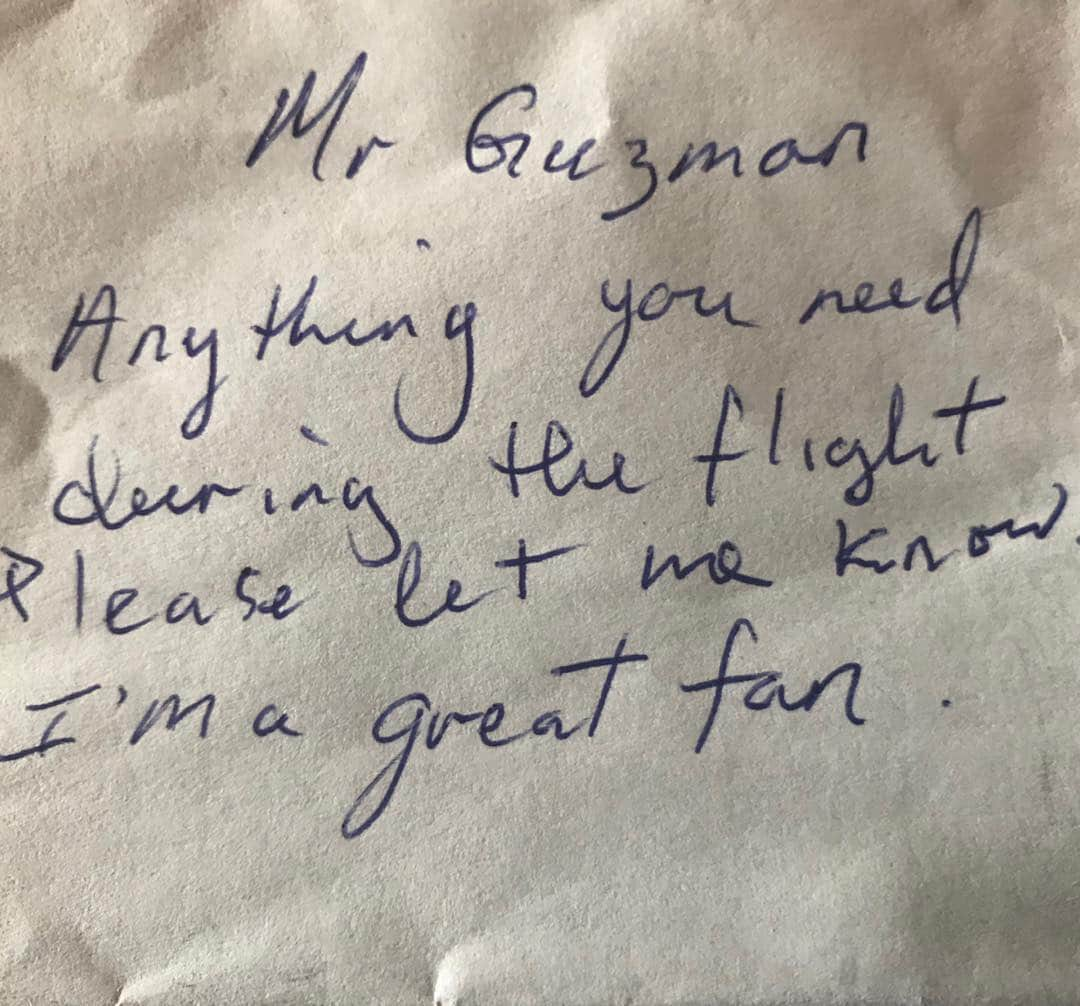 Mr Guzman
Anything you need
during the flight
Please let me know.
I'm a great fan.